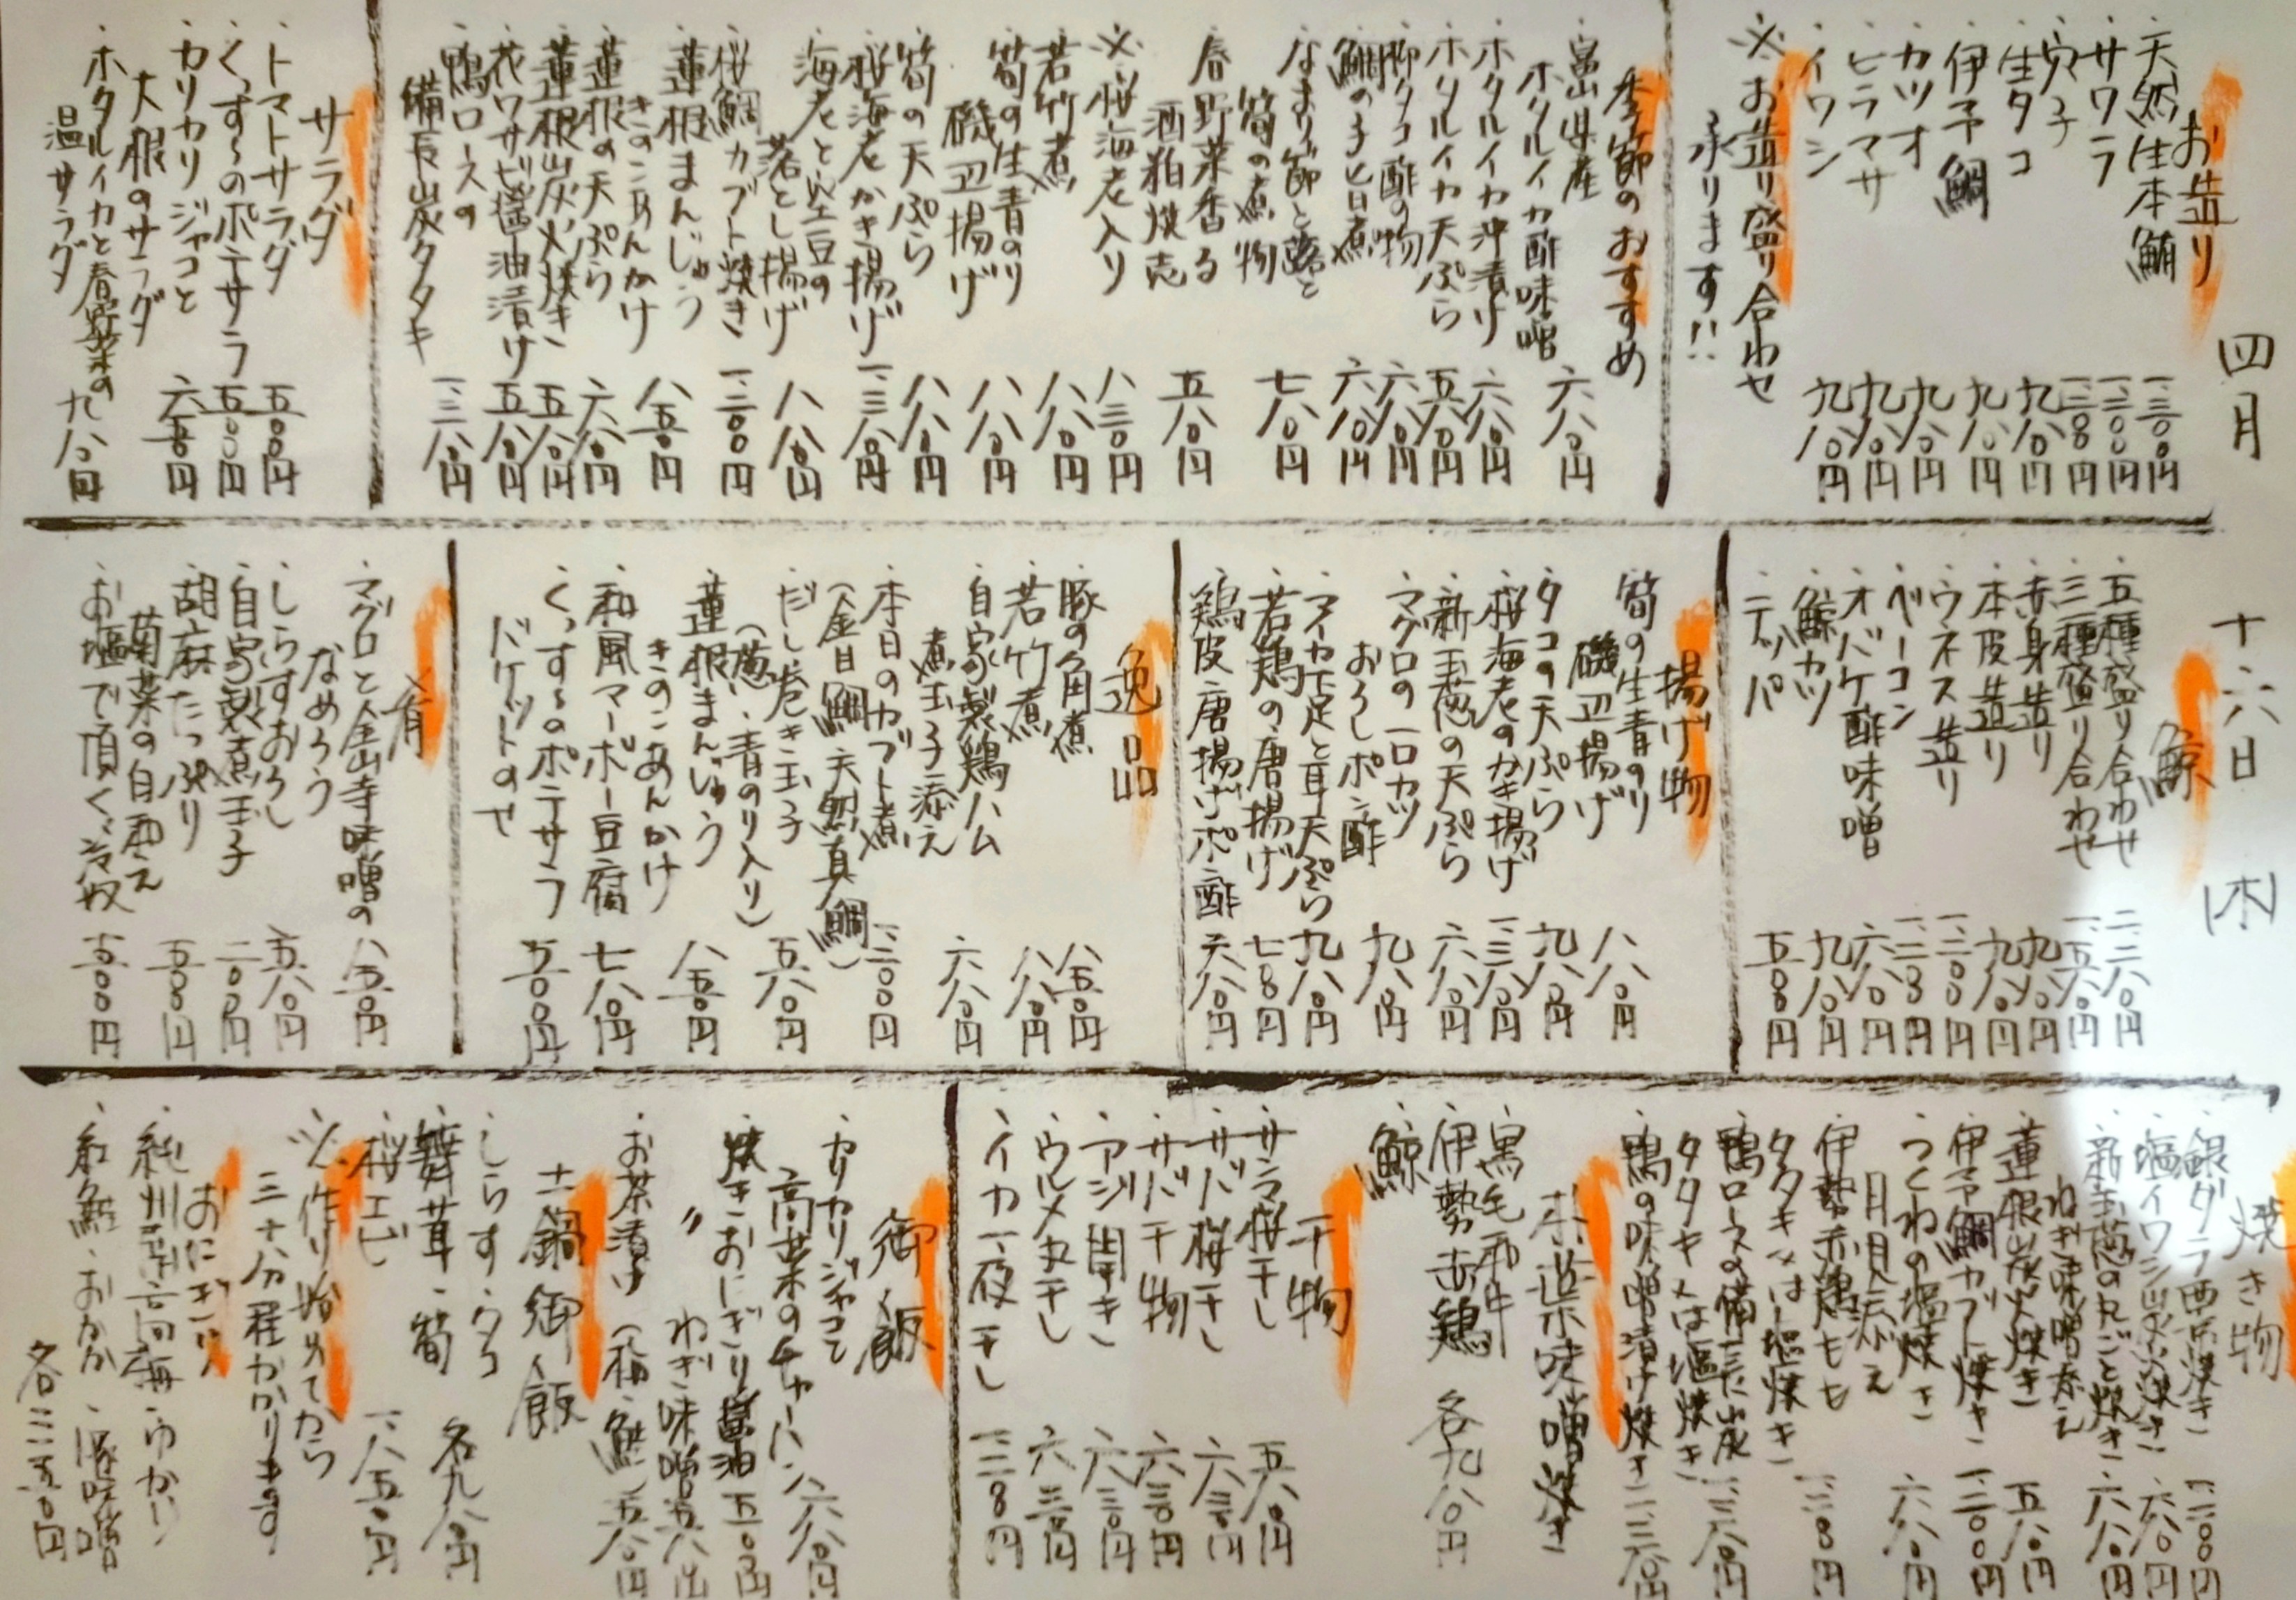 四月
十六日
(木)
お造り
・天然生本鮪 一、三〇〇円
・サワラ 一、二〇〇円
・穴子
・生タコ 九八〇円
・伊予鯛 九八〇円
・カツオ 九八〇円
・ヒラマサ 九八〇円
・イワシ 九八〇円
※お造り盛り合わせ
承ります!!
季節のおすすめ
・富山県産
ホタルイカ酢味噌 六八〇円
・ホタルイカ沖漬け 六八〇円
・ホタルイカ天ぷら 五八〇円
・柳タコ酢の物 六八〇円
・鯛の子旨煮 六八〇円
・なまり節と蕗と
筍の煮物 七八〇円
・春野菜香る
酒粕焼売 五八〇円
※桜海老入り 八三〇円
・若竹煮 八八〇円
・筍の生青のり
磯辺揚げ 八八〇円
・筍の天ぷら 八八〇円
・桜海老かき揚げ 一、三八〇円
・海老と空豆の
落とし揚げ 八八〇円
・桜鯛カブト焼き 一、二〇〇円
・蓮根まんじゅう
きのこあんかけ 八五〇円
・蓮根の天ぷら 六八〇円
・蓮根炭火焼き 五八〇円
・花ワサビ醤油漬け 五八〇円
・鴨ロースの
備長炭タタキ 一、三八〇円
サラダ
・トマトサラダ 五〇〇円
・くっすぅのポテサラ 五〇〇円
・カリカリジャコと
大根のサラダ 六五〇円
・ホタルイカと春野菜の
温サラダ 九八〇円
鯨
・五種盛り合わせ 二、二八〇円
・三種盛り合わせ 一、五八〇円
・赤身造り 九八〇円
・本皮造り 九八〇円
・ウネス造り 一、二〇〇円
・ベーコン
・オバケ酢味噌 六八〇円
・鯨カツ 九八〇円
・テッパ 五〇〇円
揚げ物
・筍の生青のり
磯辺揚げ 八八〇円
・タコの天ぷら 九八〇円
・桜海老のかき揚げ 一、三八〇円
・新玉葱の天ぷら 六八〇円
・マグロの一口カツ
おろしポン酢 九八〇円
・アイカ足と耳天ぷら 九八〇円
・若鶏の唐揚げ 七〇〇円
・鶏皮唐揚げポン酢
逸品
・豚の角煮 八五〇円
・若竹煮 八八〇円
・自家製鶏ハム
煮玉子添え 六八〇円
・本日のカブト煮
(金目鯛・天然真鯛) 一、二〇〇円
・だし巻き玉子
(葱・青のり入り) 五八〇円
・蓮根まんじゅう
きのこあんかけ 八五〇円
・和風マーボー豆腐 七八〇円
・くっすぅのポテサラ
バケットのせ
肴
・マグロと金山寺味噌の
なめろう 八五〇円
・しらすおろし 五八〇円
・自家製煮玉子 二〇〇円
・胡麻たっぷり
菊菜の白和え 五〇〇円
・お塩で頂く冷奴 五〇〇円
焼き物
・銀ダラ西京焼き 一、二〇〇円
・塩イワシ炭火焼き 六八〇円
・新玉葱の丸ごと焼き
ねぎ味噌添え 六八〇円
・蓮根炭火焼き 五八〇円
・伊予鯛カブト焼き 一、二〇〇円
・つくねの塩焼き
月見添え 六八〇円
・伊勢赤鶏もも
タタキ又は塩焼き
・鴨ロースの備長炭
タタキ又は塩焼き 一、三八〇円
・鴨の味噌漬け焼き
朴葉味噌焼き
・黒毛和牛
・伊勢赤鶏
・鯨 各九八〇円
干物
・サンマ桜干し 五八〇円
・サバ桜干し 六三〇円
・サバ干物 六三〇円
・アジ開き 六三〇円
・ウルメ丸干し 六三〇円
・イカ一夜干し
御飯
・カリカリジャコと
高菜のチャーハン 六八〇円
・焼きおにぎり醤油 五五〇円
〃 ねぎ味噌
・お茶漬け(梅・鮭) 五八〇円
土鍋御飯
・しらす・タコ
・舞茸・筍 各九八〇円
・桜エビ 一、八五〇円
※作り始めてから
三十分程かかります
おにぎり
・紀州南高梅・ゆかり
・紅鮭・おかか・豚味噌
各二五〇円